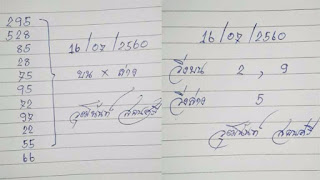 295
528
85
28
75
95
72
97
22
55
66
16/07/2560
บน × ล่าง
16/07/2560
วิ่งบน 2, 9
วิ่งล่าง 5